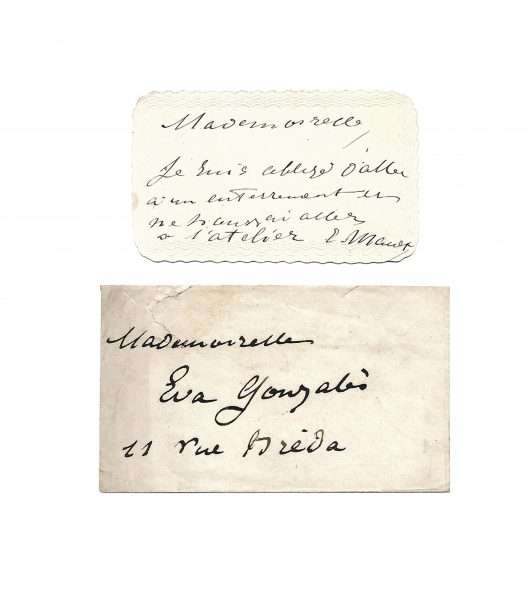 Mademoiselle,
Je suis obligé d'aller
à un enterrement et
ne pourrai aller
à l'atelier E Manet
Mademoiselle
Eva Gonzalès
11 rue Bréda